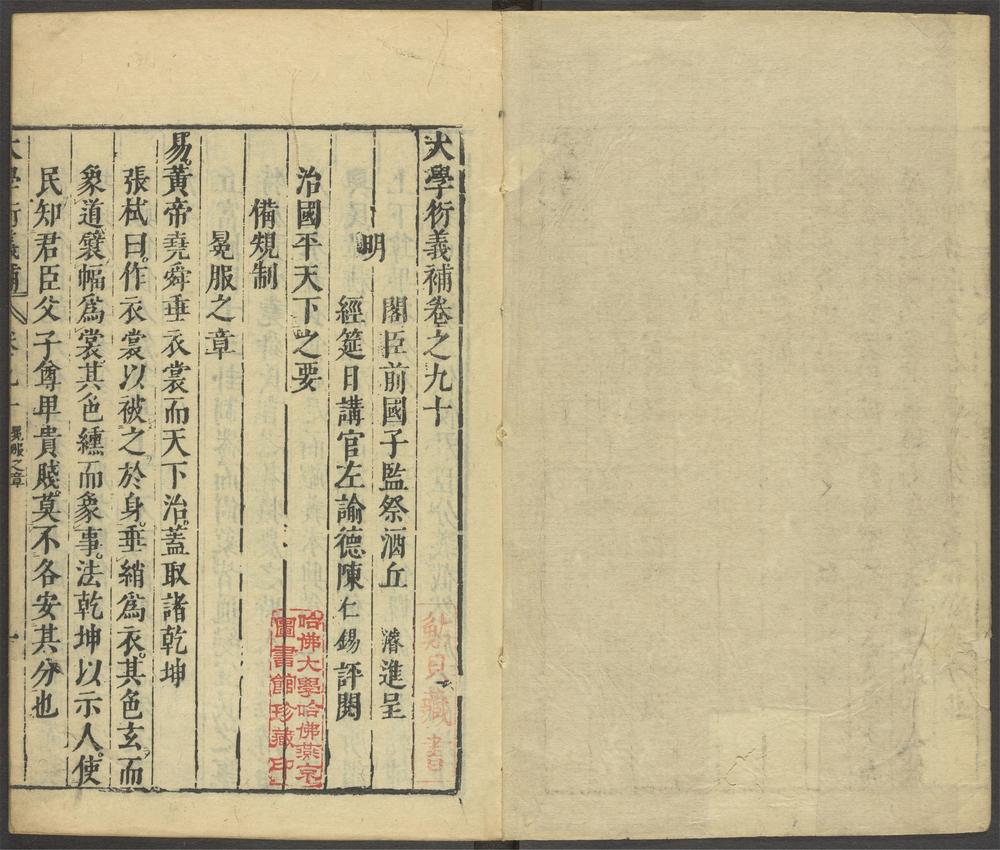 大學衍義補卷之九十
閣臣前國子監祭酒丘 濬進呈
明
經筵日講官左諭德陳仁錫評閱
治國平天下之要
備規制
冕服之章
易。黃帝堯舜垂衣裳而天下治。蓋取諸乾坤
張栻曰。作衣裳以被之於身。垂綃為衣。其色玄而
象道。襞幅為裳。其色纁而象事。法乾坤以示人。使
民知君臣父子尊卑貴賤。莫不各安其分也
大學衍義補 卷九十 冕服之章 一
藏書
哈佛大學哈佛燕京
圖書館珍藏印